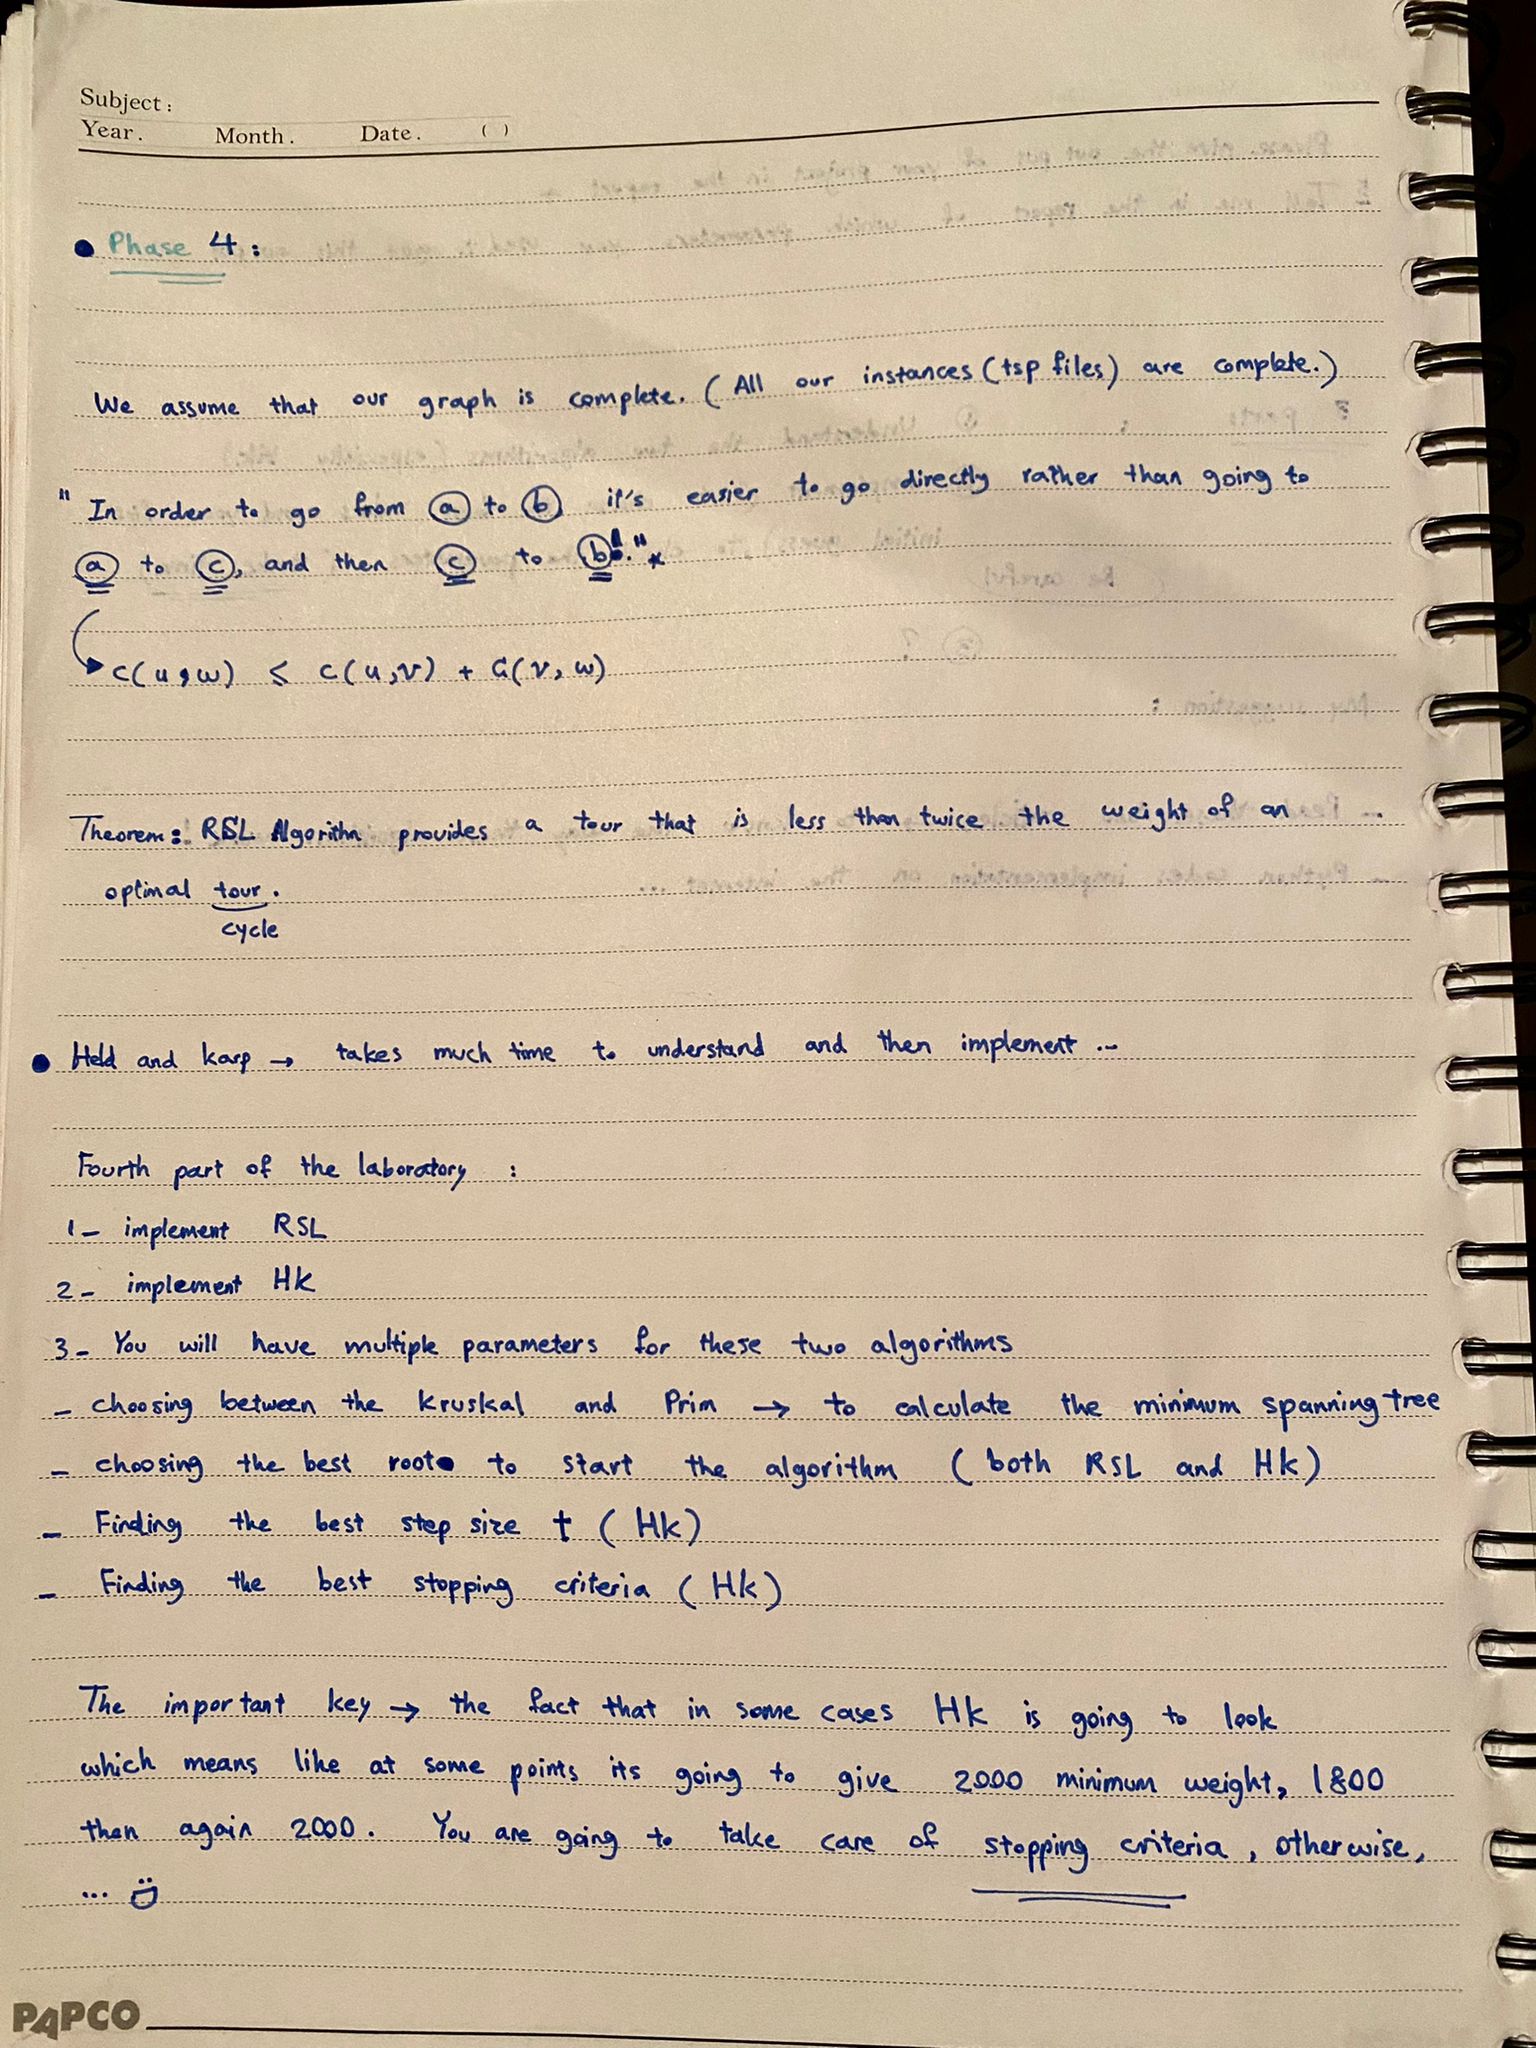 Subject:
Year. Month. Date. ( )
• Phase 4:
We assume that our graph is complete. (All our instances (tsp files) are complete.)
"In order to go from a to b, it's easier to go directly rather than going to
a to c, and then c to b!."*
c(u,w) ≤ c(u,v) + c(v,w)
Theorem: RSL Algorithm provides a tour that is less than twice the weight of an
optimal tour.
cycle
• Held and karp → takes much time to understand and then implement ...
Fourth part of the laboratory :
1- implement RSL
2- implement HK
3- You will have multiple parameters for these two algorithms
- choosing between the Kruskal and Prim → to calculate the minimum spanning tree
- choosing the best root to start the algorithm (both RSL and HK)
- Finding the best step size t (HK)
- Finding the best stopping criteria (HK)
The important key → the fact that in some cases HK is going to look
which means like at some points its going to give 2000 minimum weight, 1800
then again 2000. You are going to take care of stopping criteria, otherwise,
... 
PAPCO